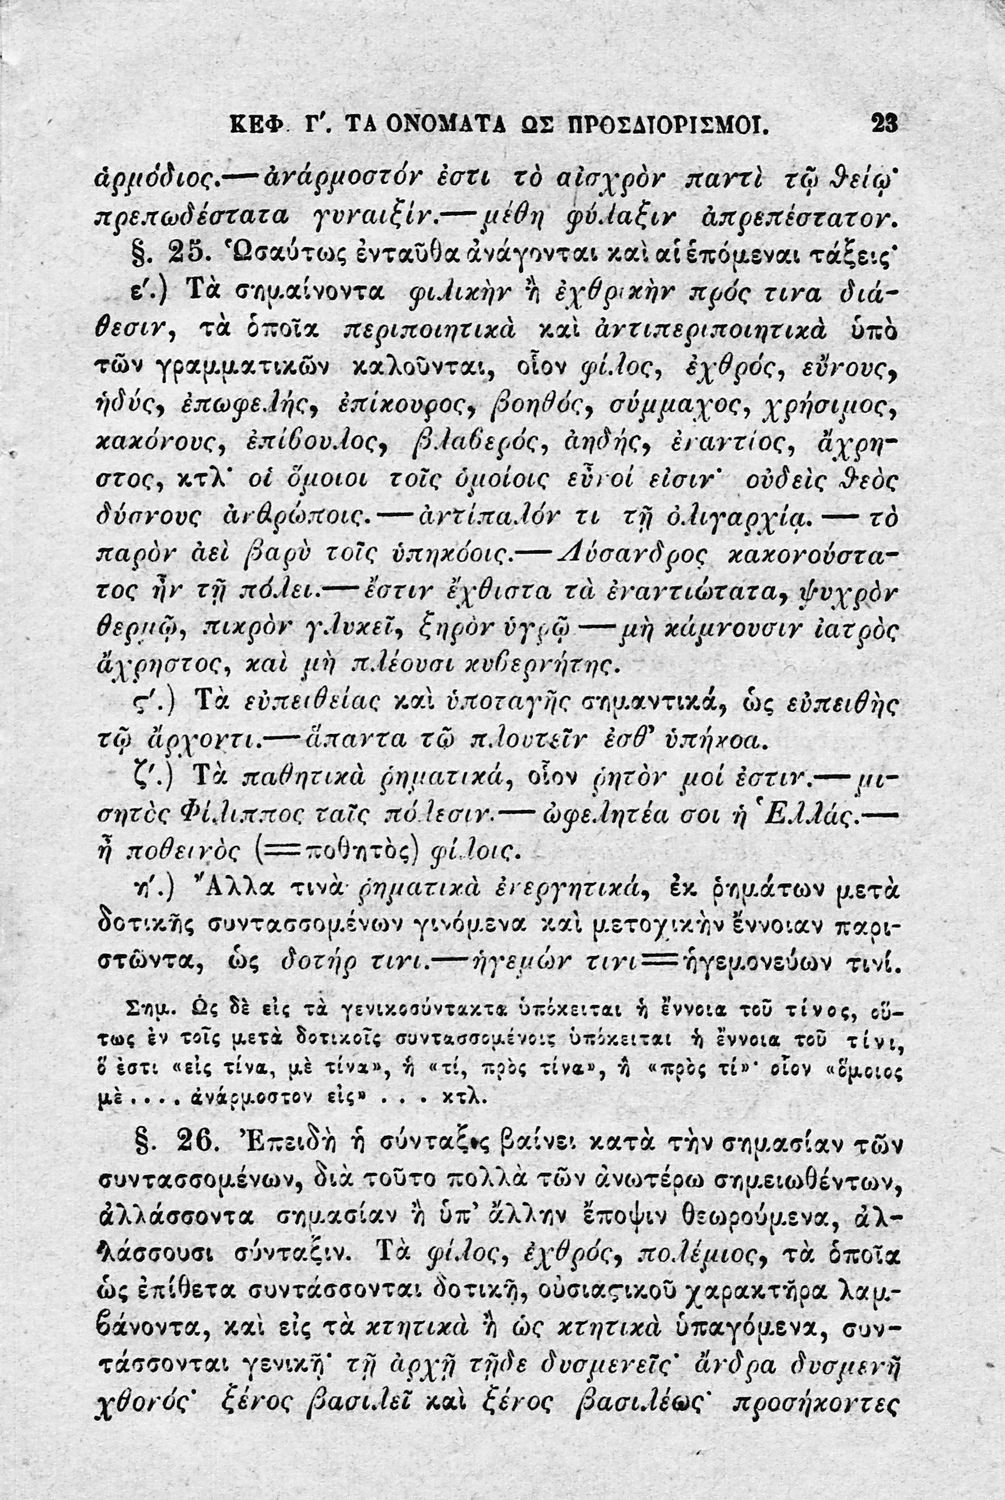 ΚΕΦ. Γ΄. ΤΑ ΟΝΟΜΑΤΑ ΩΣ ΠΡΟΣΔΙΟΡΙΣΜΟΙ. 23
ἁρμόδιος.— ἀνάρμοστόν ἐστι τὸ αἰσχρὸν παντὶ τῷ θείῳ·
πρεπωδέστατα γυναιξίν.— μέθη φύλαξιν ἀπρεπέστατον.
§. 25. Ὡσαύτως ἐνταῦθα ἀνάγονται καὶ αἱ ἑπόμεναι τάξεις·
ε΄.) Τὰ σημαίνοντα φιλικὴν ἢ ἐχθρικὴν πρός τινα διά-
θεσιν, τὰ ὁποῖα περιποιητικὰ καὶ ἀντιπεριποιητικὰ ὑπὸ
τῶν γραμματικῶν καλοῦνται, οἷον φίλος, ἐχθρός, εὔνους,
ἡδύς, ἐπωφελής, ἐπίκουρος, βοηθός, σύμμαχος, χρήσιμος,
κακόνους, ἐπίβουλος, βλαβερός, ἀηδής, ἐναντίος, ἄχρη-
στος, κτλ· οἱ ὅμοιοι τοῖς ὁμοίοις εὖνοί εἰσιν· οὐδεὶς θεὸς
δύσνους ἀνθρώποις. — ἀντίπαλόν τι τῇ ὀλιγαρχίᾳ. — τὸ
παρὸν ἀεὶ βαρὺ τοῖς ὑπηκόοις.— Λύσανδρος κακονούστα-
τος ἦν τῇ πόλει.— ἔστιν ἔχθιστα τὰ ἐναντιώτατα, ψυχρὸν
θερμῷ, πικρὸν γλυκεῖ, ξηρὸν ὑγρῷ — μὴ κάμνουσιν ἰατρὸς
ἄχρηστος, καὶ μὴ πλέουσι κυβερνήτης.
ϛ΄.) Τὰ εὐπειθείας καὶ ὑποταγῆς σημαντικά, ὡς εὐπειθὴς
τῷ ἄρχοντι.— ἅπαντα τῷ πλουτεῖν ἐσθ' ὑπήκοα.
ζ΄.) Τὰ παθητικὰ ῥηματικά, οἷον ῥητὸν μοί ἐστιν.— μι-
σητὸς Φίλιππος ταῖς πόλεσιν.— ὠφελητέα σοι ἡ Ἑλλάς.—
ἦ ποθεινὸς (=ποθητὸς) φίλοις.
η΄.) Ἄλλα τινὰ ῥηματικὰ ἐνεργητικά, ἐκ ῥημάτων μετὰ
δοτικῆς συντασσομένων γινόμενα καὶ μετοχικὴν ἔννοιαν παρι-
στῶντα, ὡς δοτήρ τινι.— ἡγεμών τινι = ἡγεμονεύων τινί.
Σημ. Ὡς δὲ εἰς τὰ γενικοσύντακτα ὑπόκειται ἡ ἔννοια τοῦ τίνος, οὕ-
τως ἐν τοῖς μετὰ δοτικοῖς συντασσομένοις ὑπόκειται ἡ ἔννοια τοῦ τίνι,
ὅ ἐστι «εἰς τίνα, μὲ τίνα», ἢ «τί, πρὸς τίνα», ἢ «πρὸς τί»· οἷον «ὅμοιος
μὲ .... ἀνάρμοστον εἰς» ... κτλ.
§. 26. Ἐπειδὴ ἡ σύνταξις βαίνει κατὰ τὴν σημασίαν τῶν
συντασσομένων, διὰ τοῦτο πολλὰ τῶν ἀνωτέρω σημειωθέντων,
ἀλλάσσοντα σημασίαν ἢ ὑπ' ἄλλην ἔποψιν θεωρούμενα, ἀλ-
λάσσουσι σύνταξιν. Τὰ φίλος, ἐχθρός, πολέμιος, τὰ ὁποῖα
ὡς ἐπίθετα συντάσσονται δοτικῇ, οὐσιαϛικοῦ χαρακτῆρα λαμ-
βάνοντα, καὶ εἰς τὰ κτητικὰ ἢ ὡς κτητικὰ ὑπαγόμενα, συν-
τάσσονται γενικῇ· τῇ ἀρχῇ τῇδε δυσμενεῖς· ἄνδρα δυσμενῆ
χθονός· ξένος βασιλεῖ καὶ ξένος βασιλέως· προσήκοντες